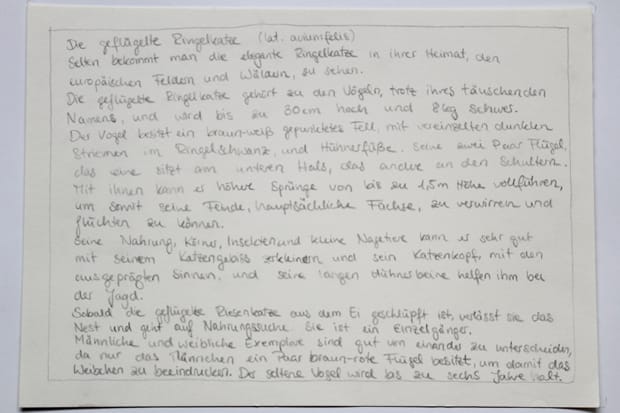 Die geflügelte Ringelkatze (lat. aviumfelis)
Selten bekommt man die elegante Ringelkatze in ihrer Heimat, den
europäischen Feldern und Wäldern, zu sehen.
Die geflügelte Ringelkatze gehört zu den Vögeln, trotz ihres täuschenden
Namens, und wird bis zu 30cm hoch und 8kg schwer.
Der Vogel besitzt ein braun-weiß gepunktetes Fell, mit vereinzelten dunklen
Striemen im Ringelschwanz, und Hühnerfüße. Seine zwei Paar Flügel,
das eine sitzt am unteren Hals, das andre an den Schultern.
Mit ihnen kann er höhre Sprünge von bis zu 1,5m Höhe vollführen,
um somit seine Feinde, hauptsächliche Füchse, zu verwirren und
flüchten zu können.
Seine Nahrung, Körner, Insekten und kleine Nagetiere kann er sehr gut
mit seinem Katzengebiss zerkleinern und sein Katzenkopf, mit den
ausgeprägten Sinnen, und seine langen Hühnerbeine helfen ihm bei
der Jagd.
Sobald die geflügelte Riesenkatze aus dem Ei geschlüpft ist, verlässt sie das
Nest und geht auf Nahrungssuche. Sie ist ein Einzelgänger.
Männliche und weibliche Exemplare sind gut von einander zu unterscheiden,
da nur das Männchen ein Paar braun-rote Flügel besitzt, um damit das
Weibchen zu beeindrucken. Der seltene Vogel wird bis zu sechs Jahre alt.